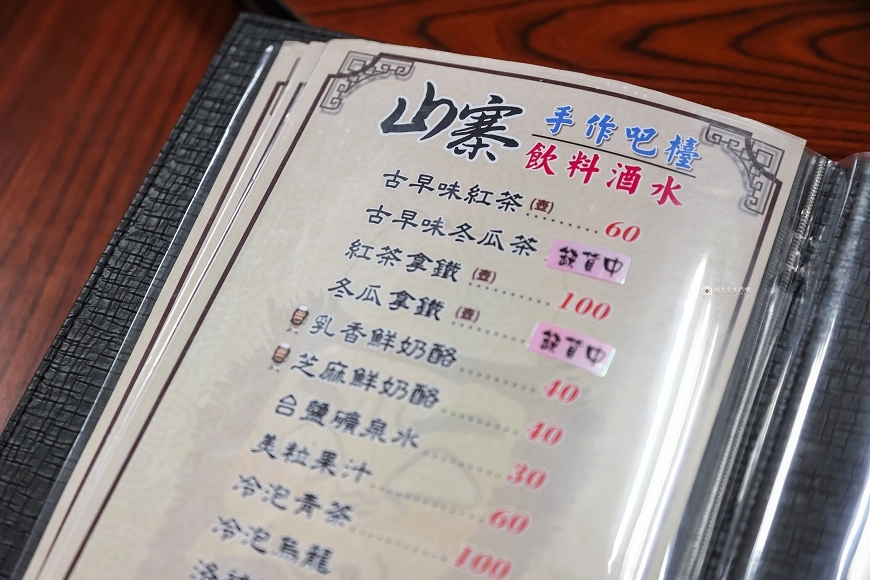 山寨 手作吧檯
飲料酒水
古早味紅茶(壺)........60
古早味冬瓜茶 缺貨中
紅茶拿鐵(壺)........100
冬瓜拿鐵(壺)........缺貨中
乳香鮮奶酪........40
芝麻鮮奶酪........40
台鹽礦泉水........30
美粒果汁........60
冷泡青茶........100
冷泡烏龍